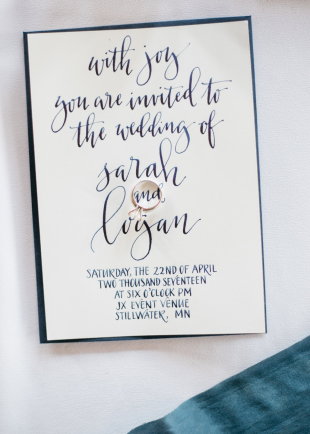 with joy
you are invited to
the wedding of
sarah
and
logan
SATURDAY, THE 22ND OF APRIL
TWO THOUSAND SEVENTEEN
AT SIX O'CLOCK PM
JX EVENT VENUE
STILLWATER, MN